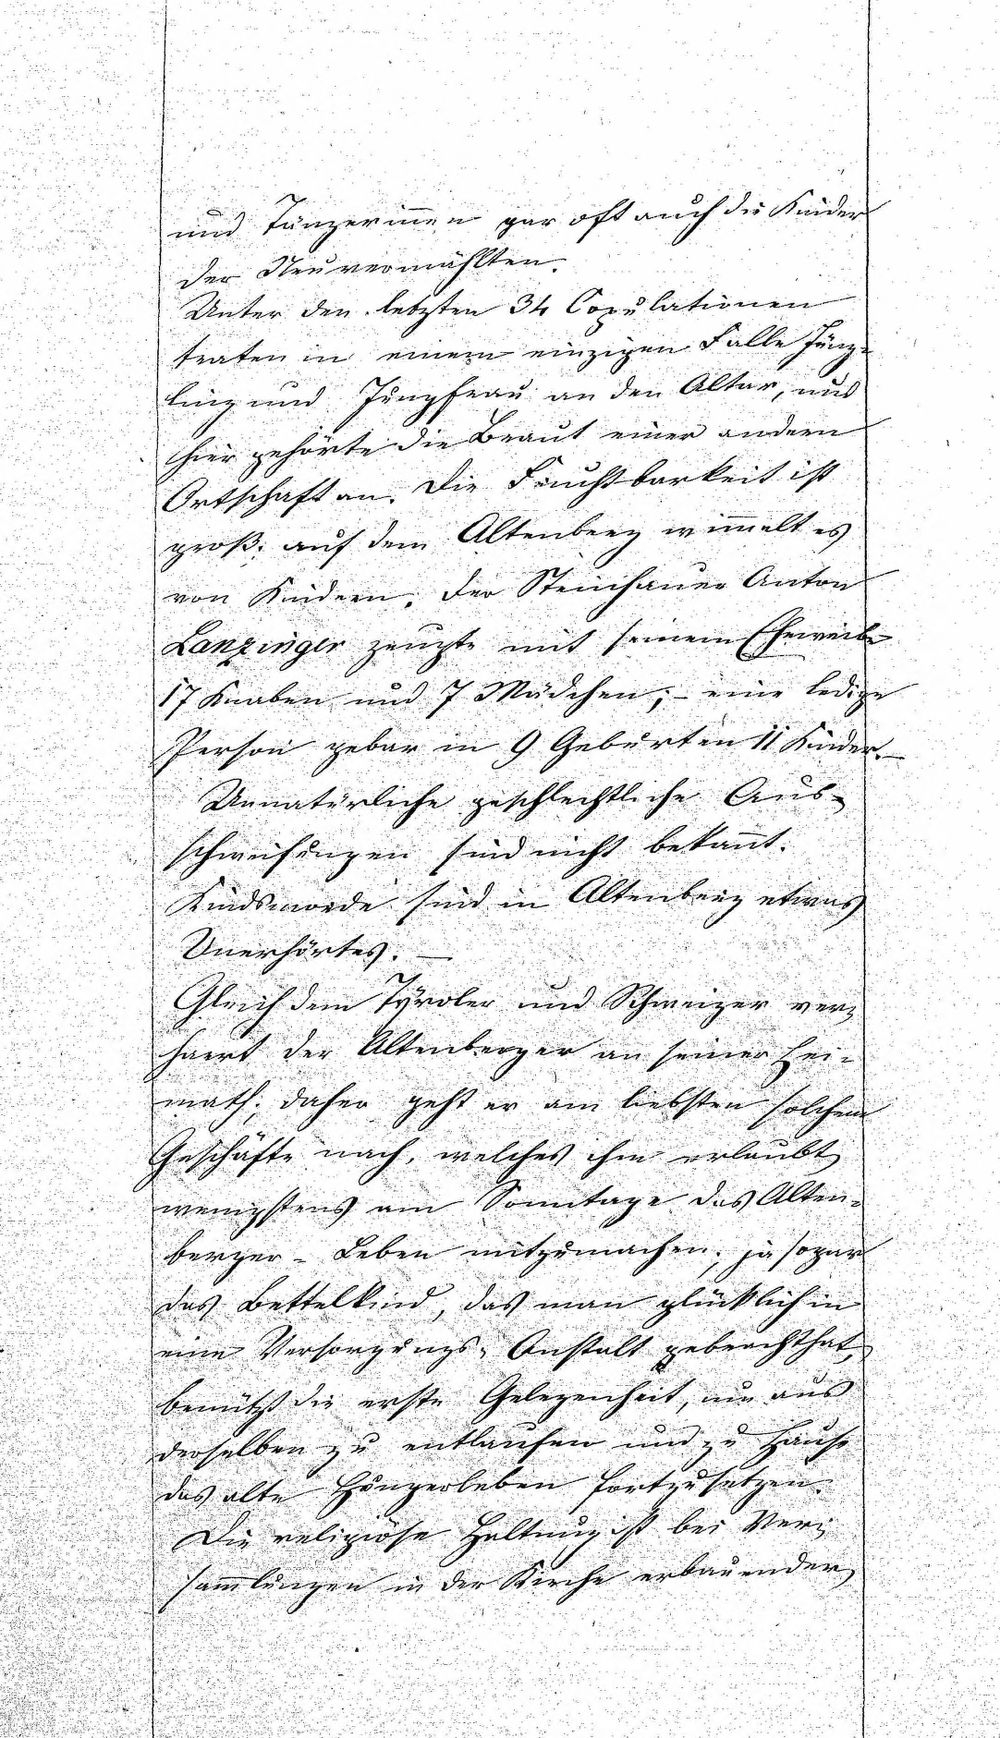 und Tänzerinnen gar oft auch die Kinder
der Neuvermählten.
Unter den letzten 34 Copulationen
traten in einem einzigen Falle Jüng-
ling und Jungfrau an den Altar, und
hier gehörte die Braut einer andern
Ortschaft an. Die Fruchtbarkeit ist
groß: auf dem Altenberg wimmelt es
von Kindern. Der Steinhauer Anton
Lanzinger zeugte mit seinem Eheweibe
17 Knaben und 7 Mädchen; – eine ledige
Person gebar in 9 Geburten 11 Kinder. –
Unnatürliche geschlechtliche Aus-
schweifungen sind nicht bekannt.
Kindsmorde sind in Altenberg etwas
Unerhörtes. –
Gleich dem Tyroler und Schweizer ver-
harrt der Altenberger an seiner Hei-
math; daher geht er am liebsten solchem
Geschäfte nach, welches ihm erlaubt
wenigstens am Sonntage das Alten-
berger-Leben mitzumachen; ja sogar
das Bettelkind, das man glücklich in
eine Versorgungs-Anstalt gebracht hat,
benützt die erste Gelegenheit, um aus
derselben zu entlaufen und zu Hause
das alte Hungerleben fortzusetzen.
Die religiöse Haltung ist bei Ver-
sammlungen in der Kirche erbauender,